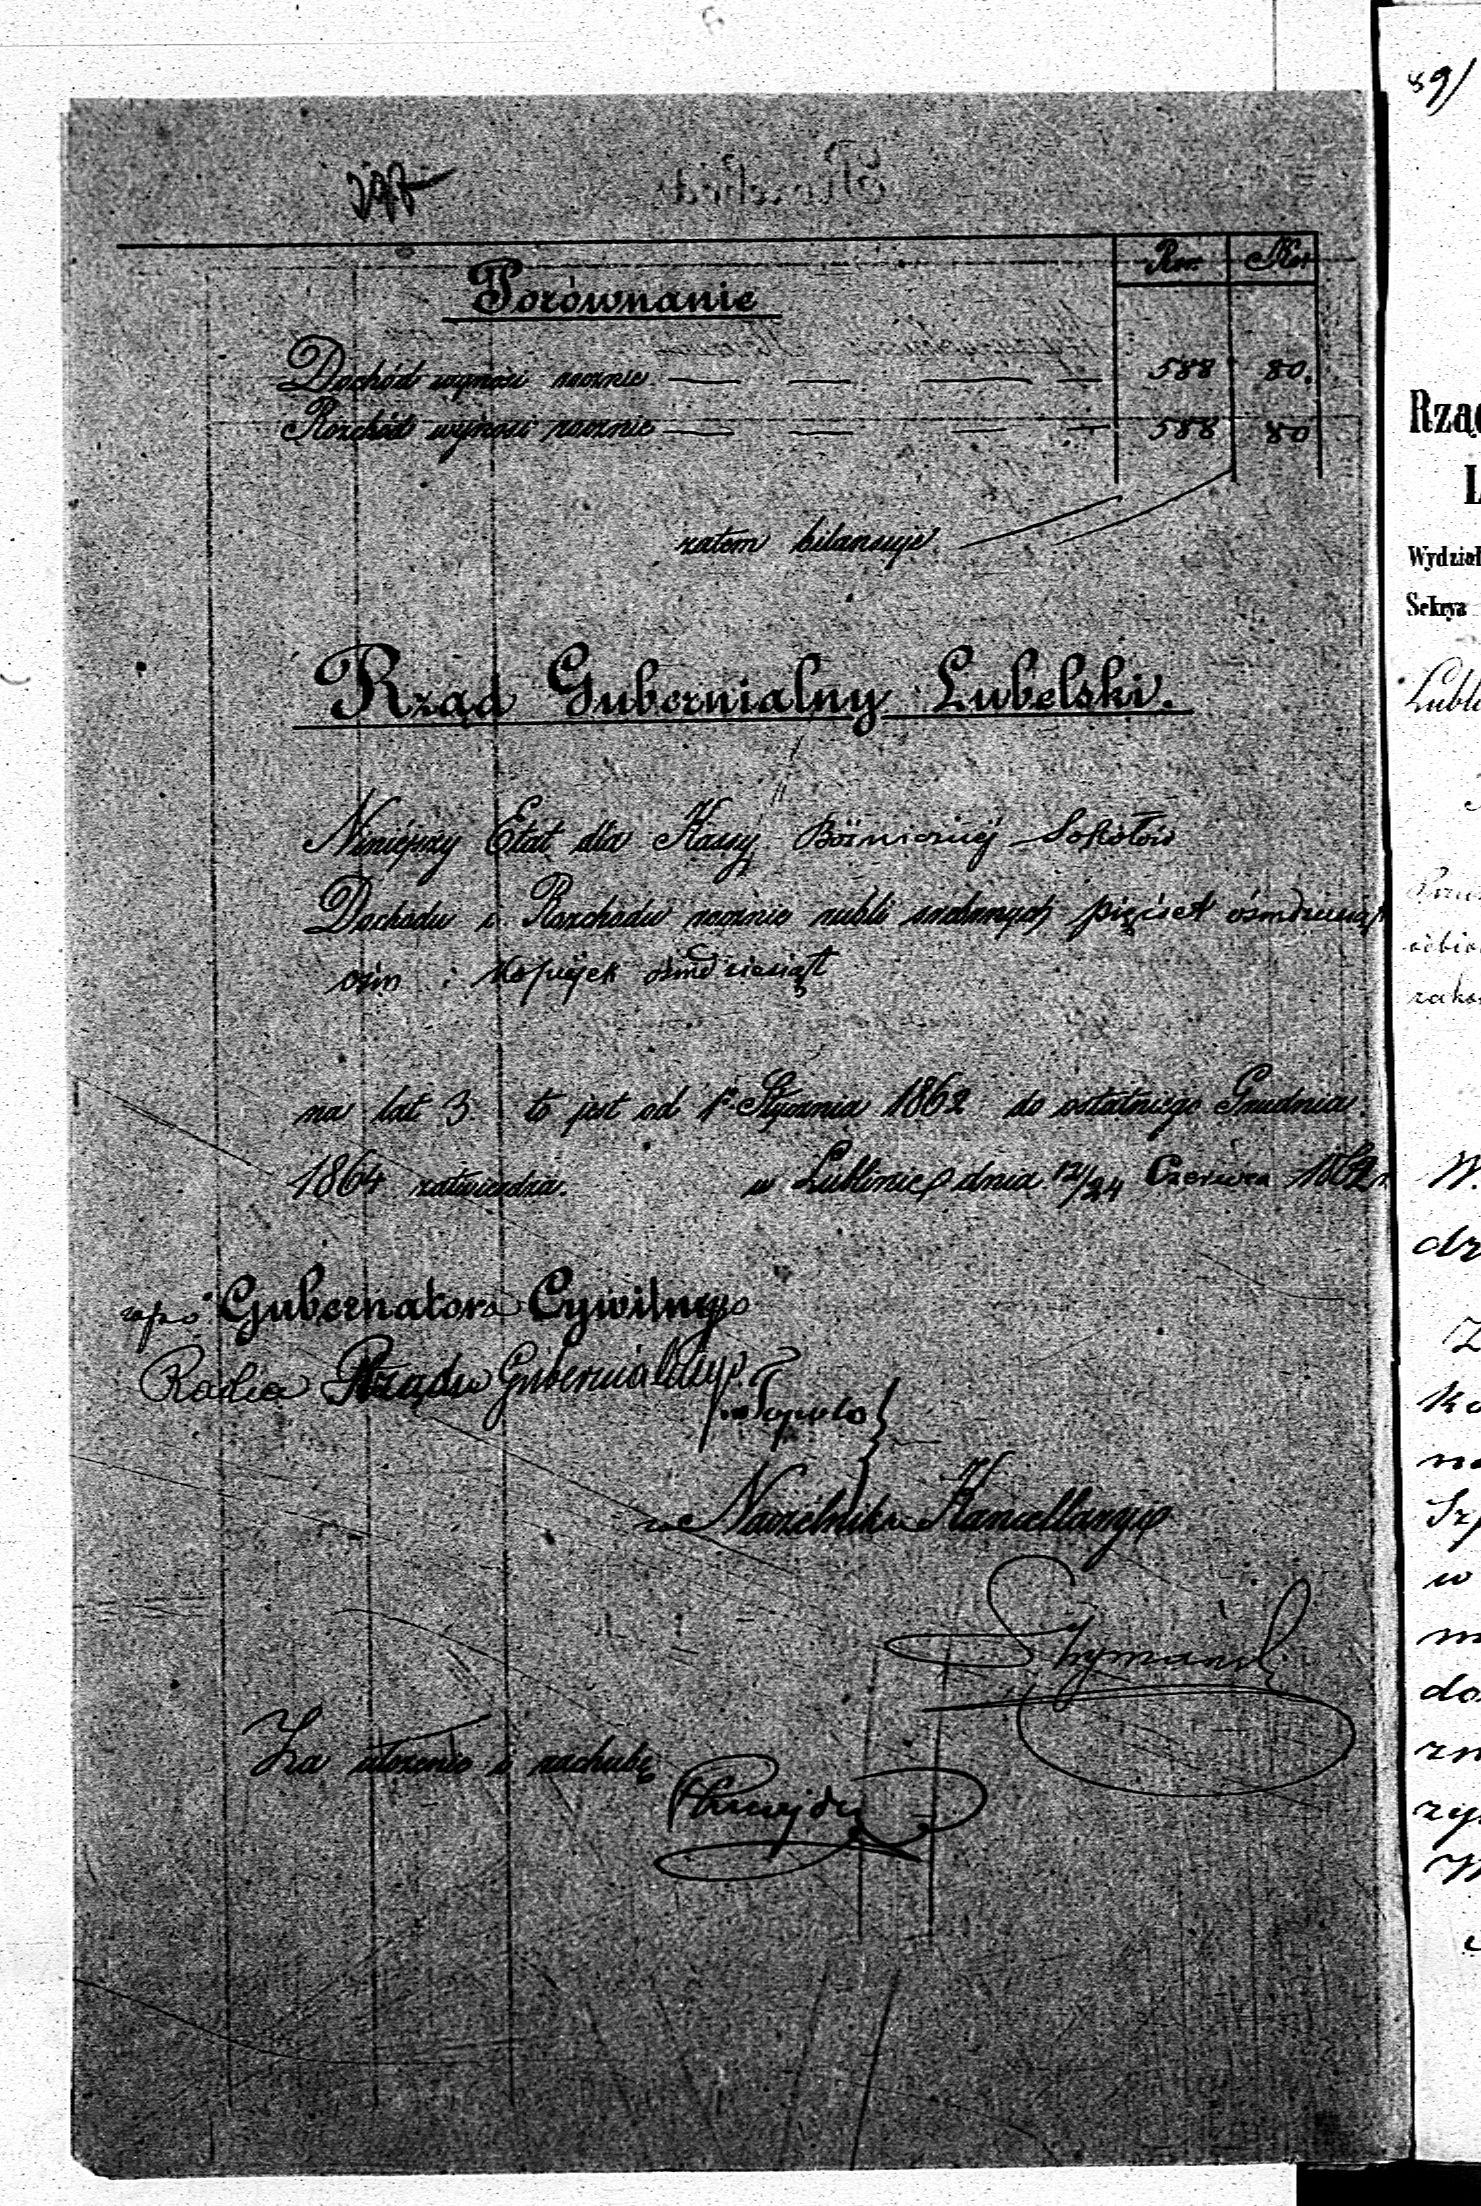 Porównanie
Rsr. Kop.
Dochód wynosi rocznie 588 80.
Rozchód wynosi rocznie 588 80
zatem bilansuje.
Rząd Gubernialny Lubelski.
Niniejszy Etat dla Kassy Bóżniczej Sokołów
Dochodu i Rozchodu rocznie rubli srebrnych pięćset ośmdziesiąt
ośm i kopiejek ośmdziesiąt
na lat 3 to jest od 1go Stycznia 1862 do ostatniego Grudnia
1864 zatwierdza. w Lublinie dnia 12/24 Czerwca 1862 r.
Gubernatora Cywilnego
Radca Rządu Gubernialnego
Naczelnika Kancellaryi
Szymański
Za ułożenie i rachubę
89/
Rzą
L
Wydział
Sekcya
Lubli
W.
dz
Z
w
do